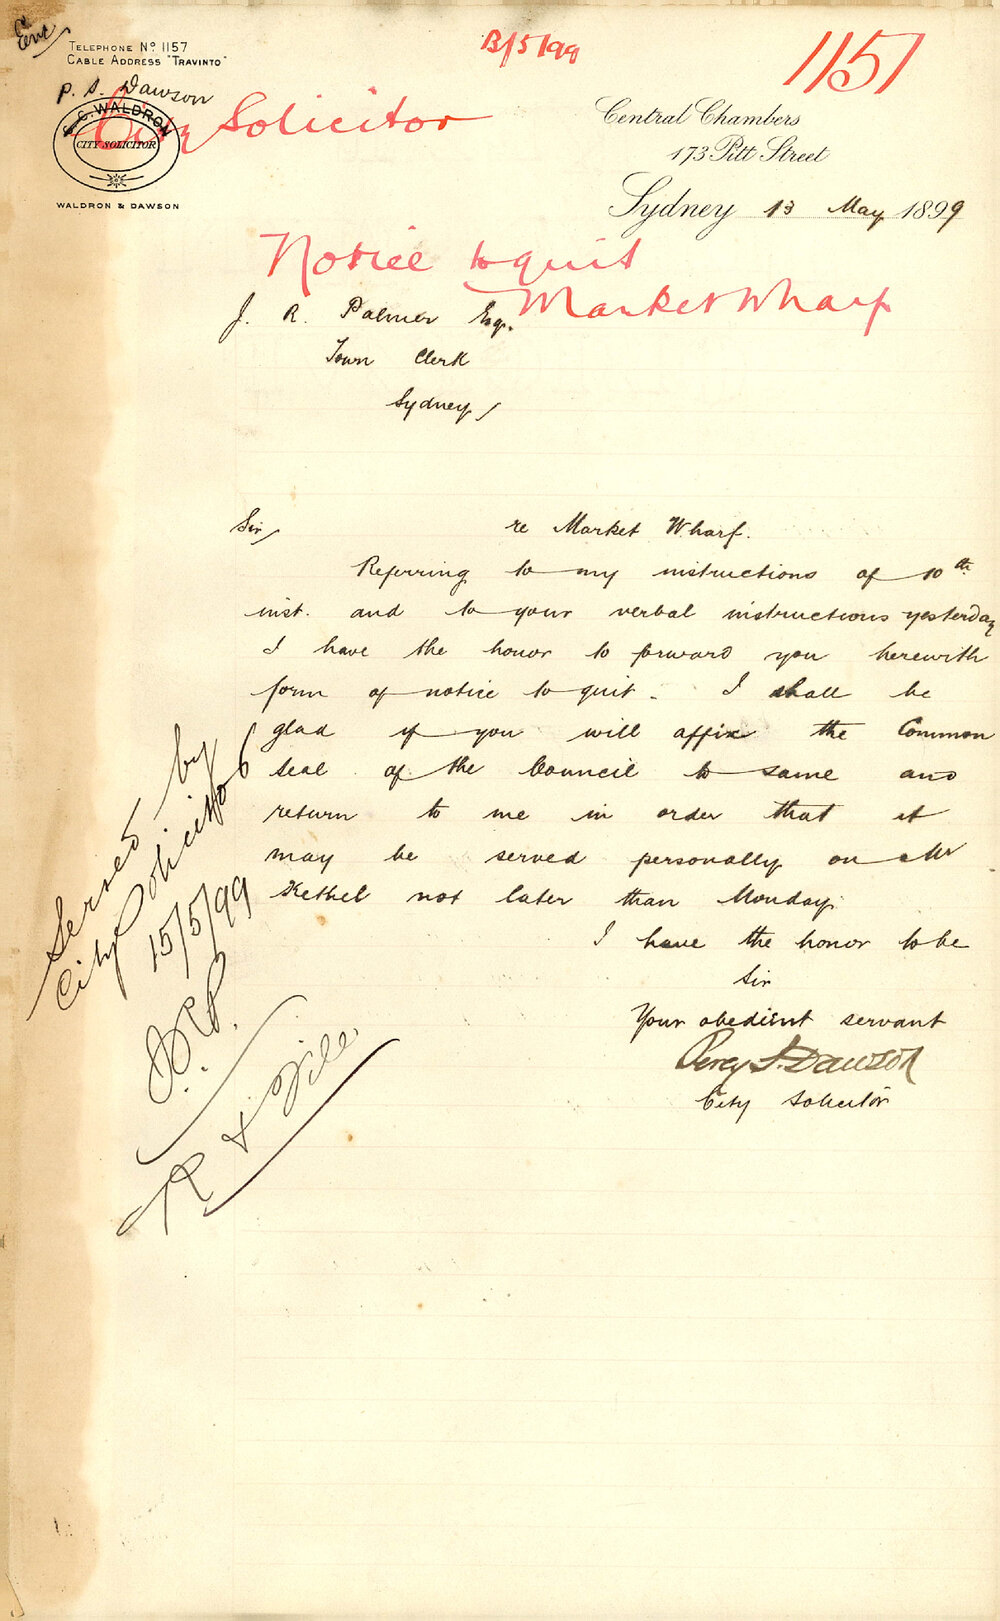 Enr
TELEPHONE No 1157
CABLE ADDRESS "TRAVINTO"
13/5/99
1151
P. S. Dawson
City Solicitor
G.C. WALDRON
CITY SOLICITOR
WALDRON & DAWSON
Central Chambers
173 Pitt Street
Sydney 13 May 1899
Notice to quit
Market Wharf
J. R. Palmer Esq.
Town Clerk
Sydney
Sir
re Market Wharf.
Referring to my instructions of 10th
inst. and to your verbal instructions yesterday
I have the honor to forward you herewith
form of notice to quit. I shall be
glad if you will affix the Common
Seal of the Council to same and
return to me in order that it
may be served personally on Mr
Kethel not later than Monday.
I have the honor to be
Sir
Your obedient servant
Percy S. Dawson
City Solicitor
Served by
City Solicitor
15/5/99
J.R.P.
R & File